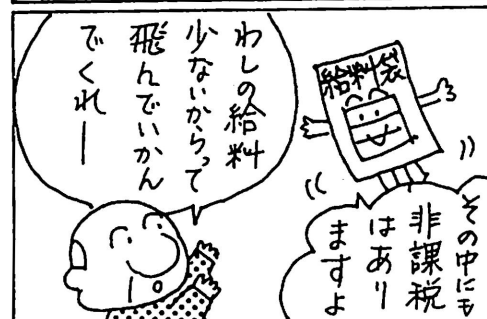 給料袋
わしの給料
少ないからって
飛んでいかん
でくれー
その中にも
非課税
はあり
ますよ